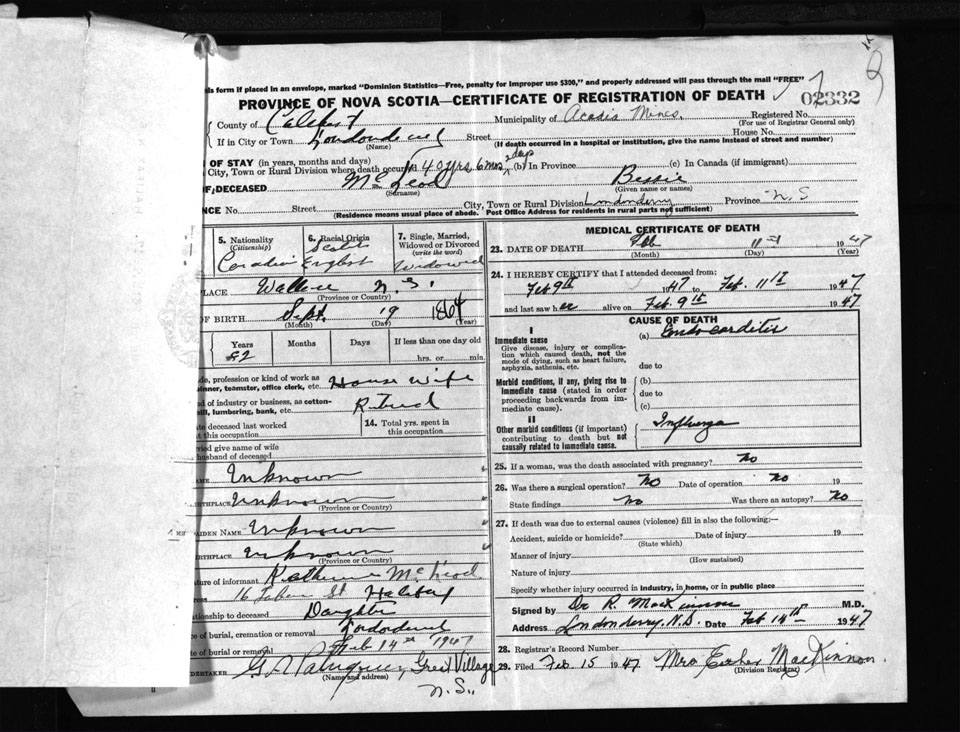 is form if placed in an envelope, marked "Dominion Statistics—Free, penalty for improper use $300," and properly addressed will pass through the mail "FREE"
PROVINCE OF NOVA SCOTIA—CERTIFICATE OF REGISTRATION OF DEATH
02332
County of
Municipality of Acadia Mines
Registered No.
(For use of Registrar General only)
If in City or Town Londonderry Street
House No.
(Name)
(If death occurred in a hospital or institution, give the name instead of street and number)
OF STAY (in years, months and days)
City, Town or Rural Division where death occurred 40 yrs 6 mos 2 days (b) In Province
(c) In Canada (if immigrant)
OF DECEASED McLeod Bessie
(Surname) (Given name or names)
NCE No. Street City, Town or Rural Division Londonderry Province N.S
(Residence means usual place of abode. Post Office Address for residents in rural parts not sufficient)
5. Nationality
(Citizenship)
Canadian
6. Racial Origin
English
7. Single, Married,
Widowed or Divorced
(write the word)
Widowed
LACE Wallace N.S.
(Province or Country)
OF BIRTH Sept. 19 1864
(Month) (Day) (Year)
Years Months Days If less than one day old
82 hrs. or min.
de, profession or kind of work as
inner, teamster, office clerk, etc. House wife
d of industry or business, as cotton-
ill, lumbering, bank, etc. Retired
te deceased last worked
t this occupation
14. Total yrs. spent in
this occupation
ried give name of wife
husband of deceased
AME Unknown
RTHPLACE Unknown
(Province or Country)
AIDEN NAME Unknown
RTHPLACE Unknown
(Province or Country)
ature of informant Katherine McLeod
16 St Halifax
tionship to deceased Daughter
e of burial, cremation or removal
te of burial or removal Feb 14th 1947
DERTAKER Great Village
(Name and address)
N.S.
MEDICAL CERTIFICATE OF DEATH
23. DATE OF DEATH Feb 11th 1947
(Month) (Day) (Year)
24. I HEREBY CERTIFY that I attended deceased from:
Feb 9th 1947 to Feb. 11th 1947
and last saw her alive on Feb. 9th 1947
CAUSE OF DEATH
I
Immediate cause
Give disease, injury or complica-
tion which caused death, not the
mode of dying, such as heart failure,
asphyxia, asthenia, etc.
(a) Endocarditis
due to
Morbid conditions, if any, giving rise to
immediate cause (stated in order
proceeding backwards from im-
mediate cause).
(b)
due to
(c)
II
Other morbid conditions (if important)
contributing to death but not
causally related to immediate cause.
Influenza
25. If a woman, was the death associated with pregnancy? No
26. Was there a surgical operation? No Date of operation No 19
State findings No Was there an autopsy? No
27. If death was due to external causes (violence) fill in also the following:—
Accident, suicide or homicide? Date of injury 19
(State which)
Manner of injury
(How sustained)
Nature of injury
Specify whether injury occurred in industry, in home, or in public place
Signed by Dr R. MacKinnon M.D.
Address Londonderry, N.S. Date Feb 14th 1947
28. Registrar's Record Number
29. Filed Feb. 15 1947. Mrs. Esther MacKinnon
(Division Registrar)